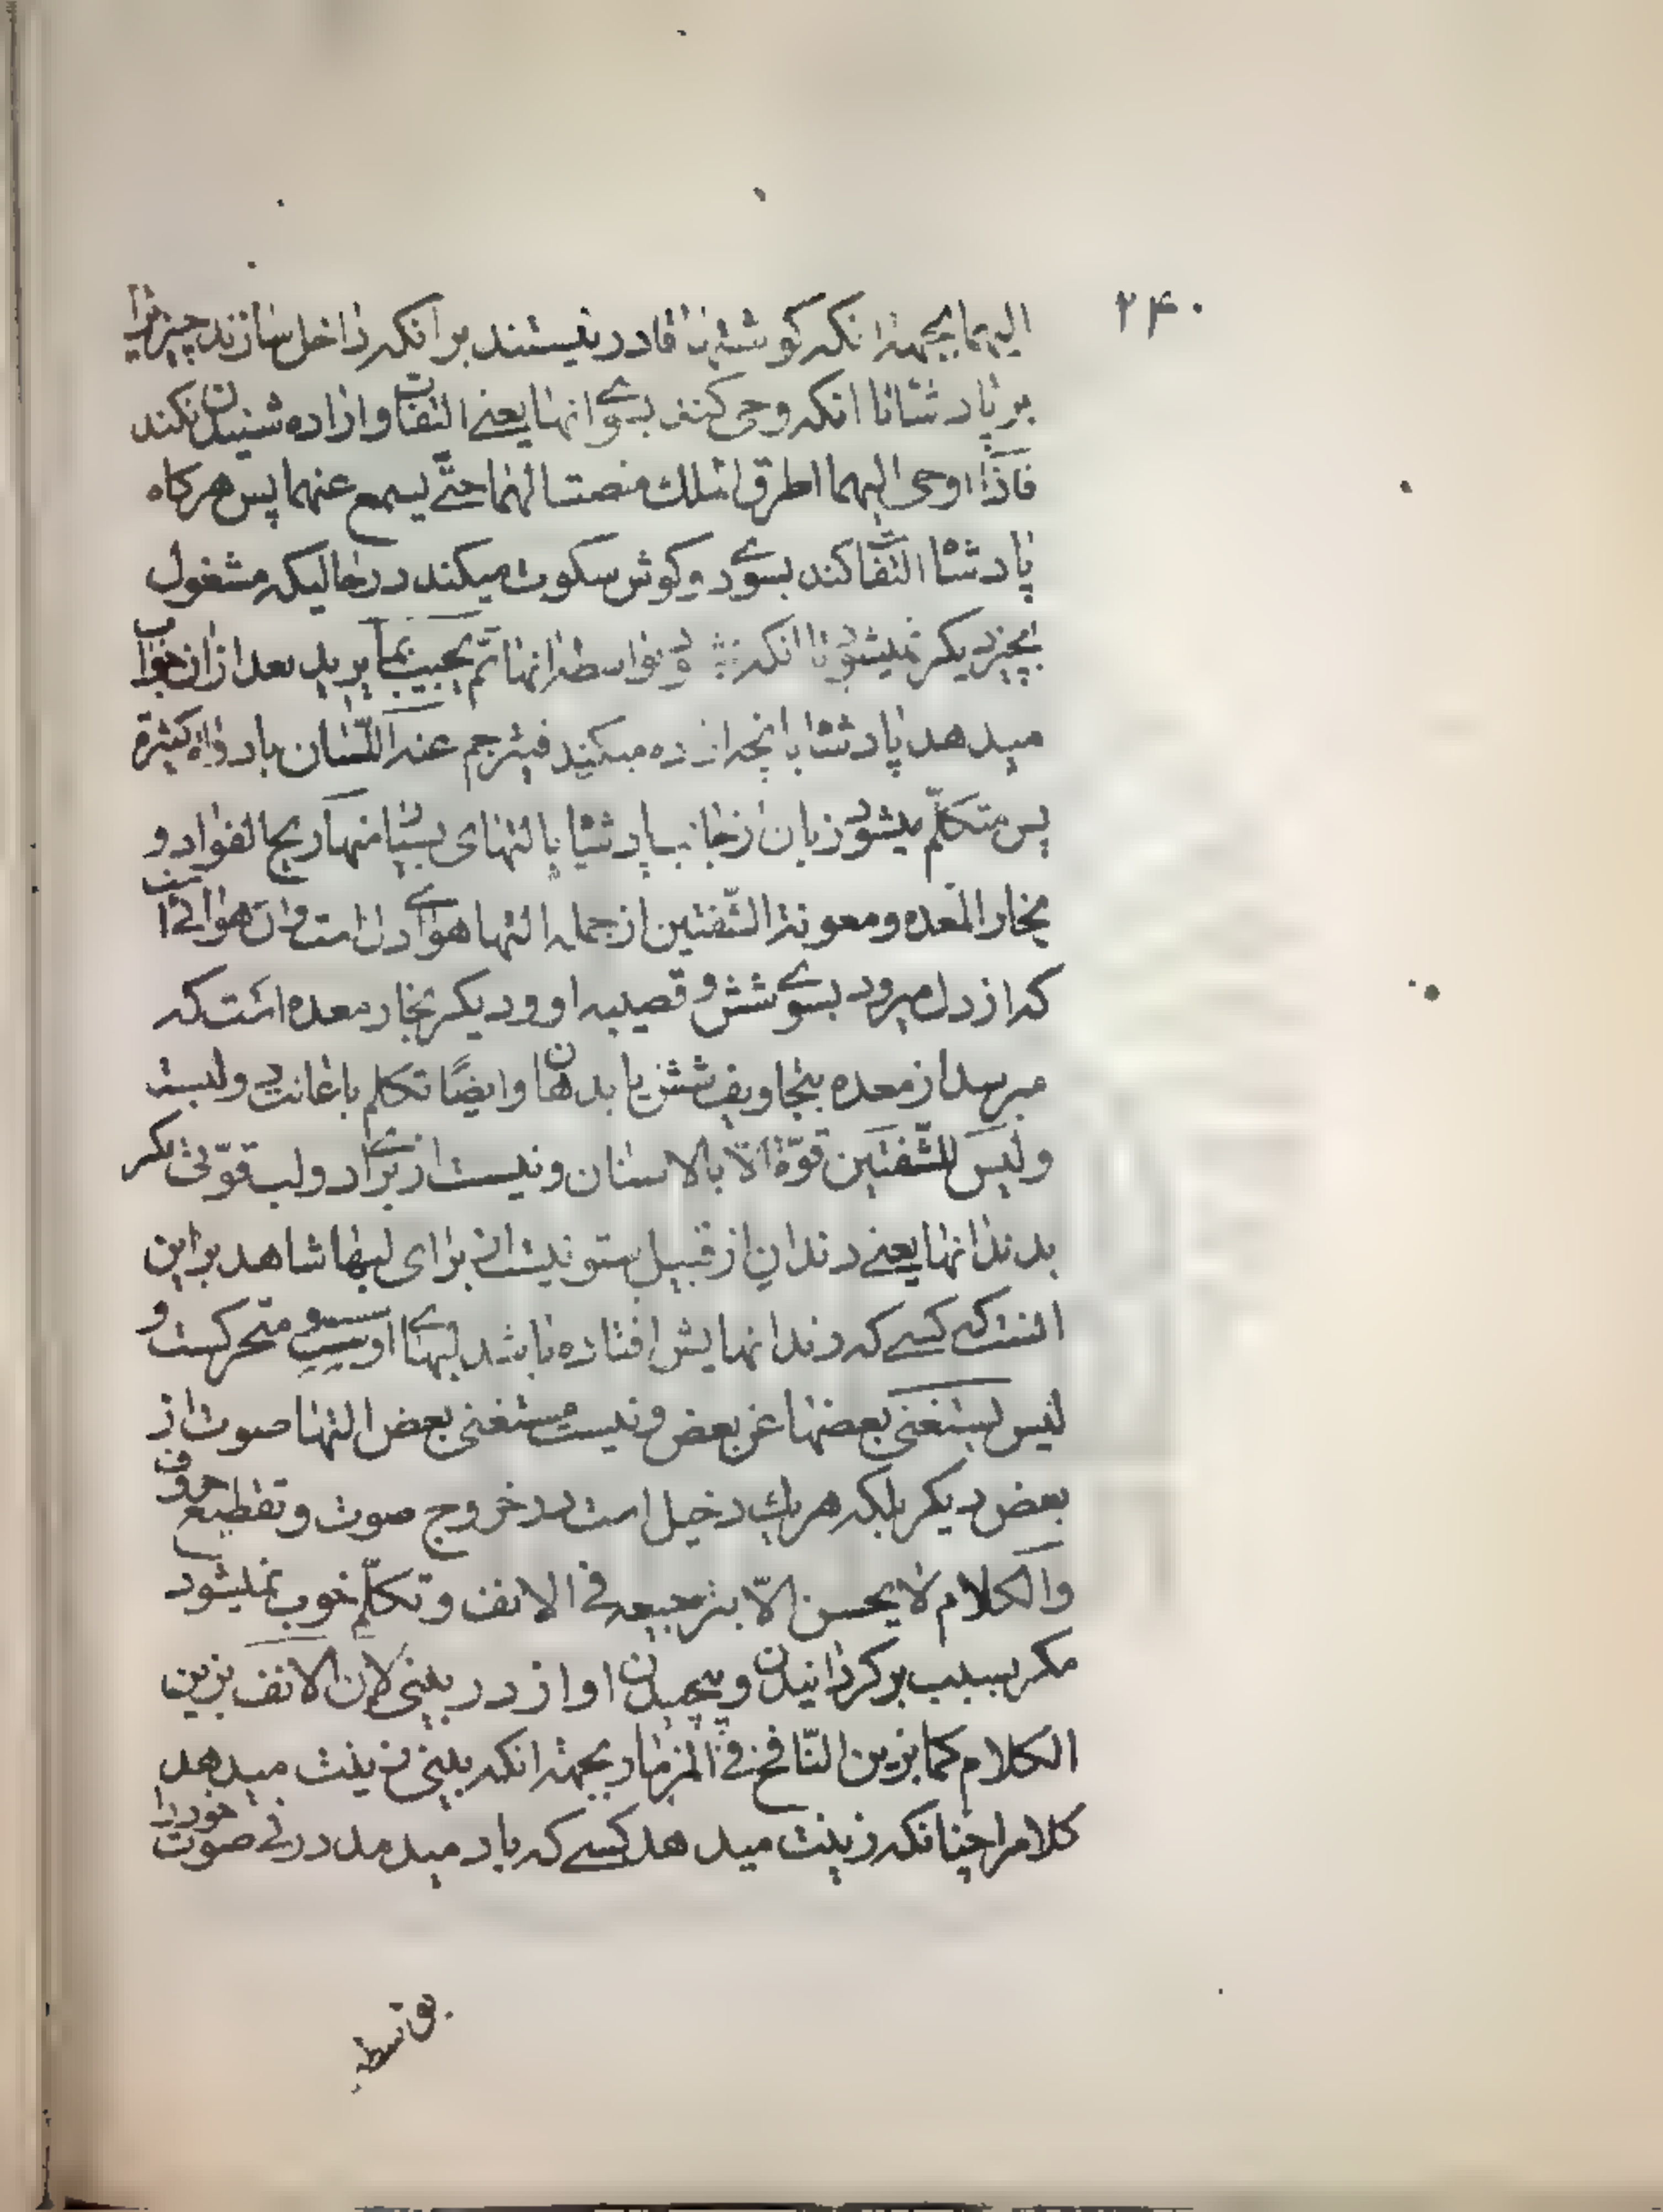 ۲۴۰
الیهما بجهة انکه کوشها قادر نیستند بر انکه داخل سازند چیزیرا
بر پادشاه تا انکه وحی کند بسوی انها یعنے التفات و اراده شنیدن نکند
فاذا اوحی الیهما اطرق الملك منصتا لهما حتّے یسمع عنهما پس هرکاه
پادشاه التفات کند بسوی دو کوش سکوت میکند در حالیکه مشغول
بچیز دیکر نمیشود تا انکه بواسطه انها ثم یجیب بما یرید بعد از ان جواب
میدهد پادشاه بانچه اراده میکند فیترجم عنه اللّسان بادواة کثیرة
پس متکلّم میشود زبان از جانب پادشاه بالتهای بسیار منها ریح الفواد و
بخار المعده و معونة الشّفتین از جمله التها هوای دل است و ان هوائے است
که از دل میرود بسوی شش و قصبه او و دیکر بخار معده است که
میرسد از معده بتجاویف شش یا بدهان و ایضًا تکلم باعانت دو لبست
و لیس للشّفتین قوّة الّا بالاسنان و نیست از برای دو لب قوّتی مکر
بدندانها یعنے دندان از قبیل ستونیست از برای لبها شاهد بر این
انست که کسے که دندانهایش افتاده باشد لبهای او سست متحرکست و
لیس یستغنی بعضها عن بعض و نیست مستغنی بعض التها صوت از
بعض دیکر بلکه هریك دخیل است در خروج صوت و تقطیع حروف
والکلام لا یحسن الّا بترجیعه فی الانف و تکلّم خوب نمیشود
مکر بسبب برکردانیدن و پیچیدن اواز در بینی لانّ الانف یزین
الکلام کما یزین النّافخ فی المزمار بجهة انکه بینی زینت میدهد
کلامرا چنانکه زینت میدهد کسے که باد میدمد در نے صوت خود را